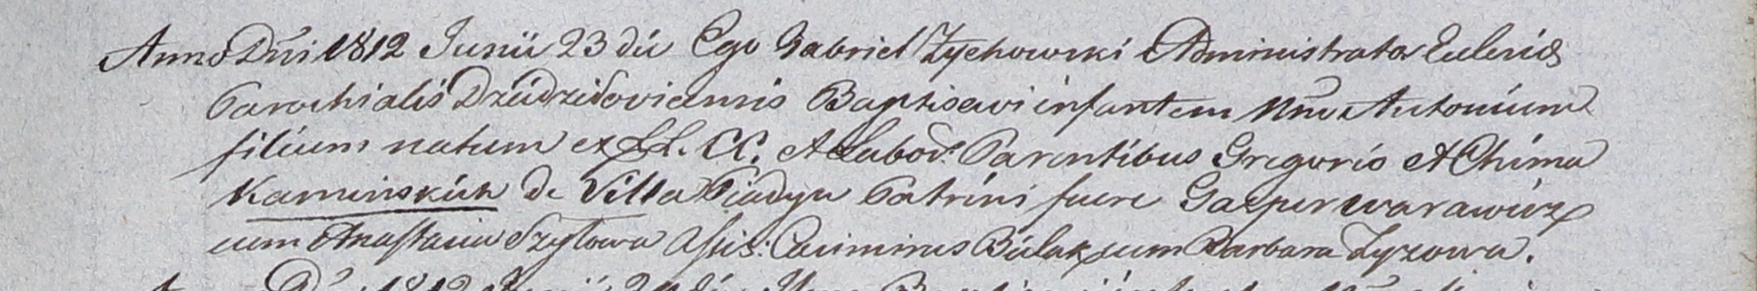 Anno Dni 1812 Junii 23 die Ego Gabriel Zychowski Administrator Eclesiæ
Parochialis Dziudzidoviensis Baptisavi infantem Nne Antonium
filium natum ex LL. CC. et Labod. Parentibus Gregorio et Chima
Kaminskich de Villa Patrini fuere Gasper warawicz
cum Anastasia Szyłowa Assis: Casimirus Bulak cum Barbara Zyzowa.